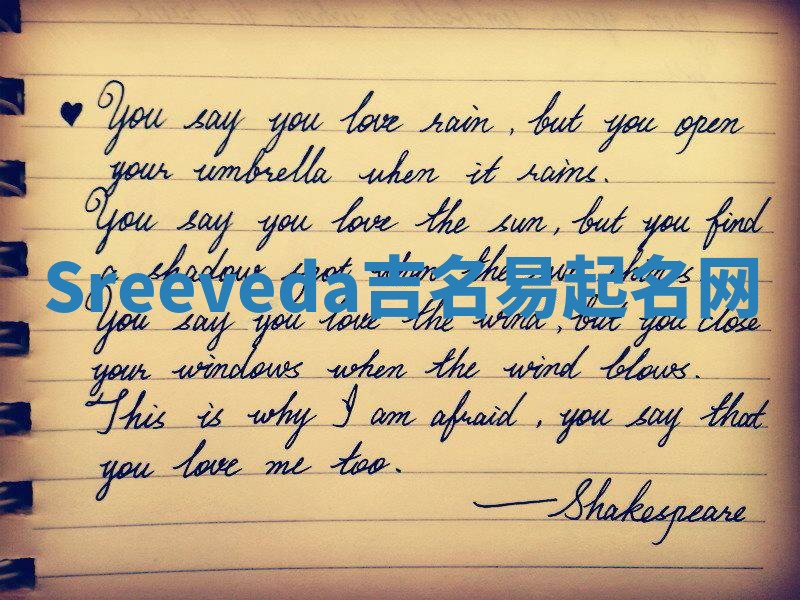 ♥ You say you love rain, but you open
your umbrella when it rains.
You say you love the sun, but you find
a shadow spot when the sun shines
Sreeveda吉名易起名网
You say you love the wind, but you close
your windows when the wind blows.
This is why I am afraid, you say that
you love me too.
—Shakespeare